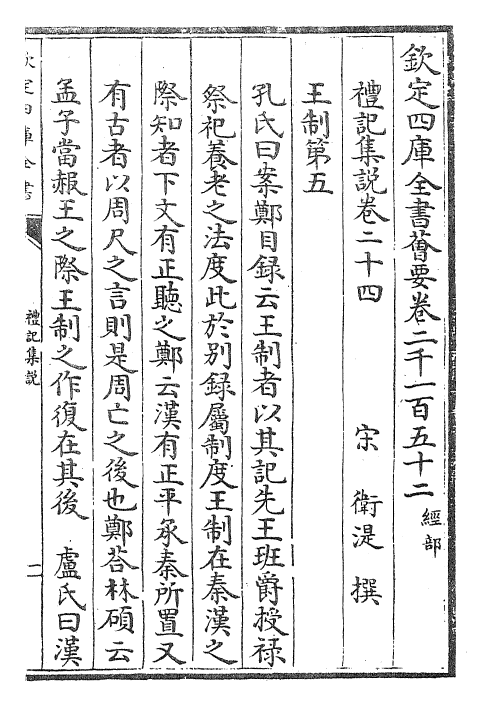 欽定四庫全書薈要卷二千一百五十二 經部
禮記集説卷二十四 宋 衛湜 撰
王制第五
孔氏曰案鄭目録云王制者以其記先王班爵授禄
祭祀養老之法度此於别録屬制度王制在秦漢之
際知者下文有正聽之鄭云漢有正平承秦所置又
有古者以周尺之言則是周亡之後也鄭荅林碩云
孟子當赧王之際王制之作復在其後 盧氏曰漢
欽定四庫全書
禮記集説